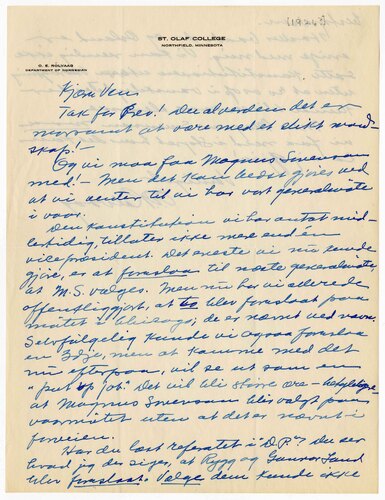 (1924?)
ST. OLAF COLLEGE
NORTHFIELD, MINNESOTA
O. E. ROLVAAG
DEPARTMENT OF NORWEGIAN
Kjære Ven:
Tak for Brev! Du al verden det er
morsomt at være med et slikt mand-
skap!—
Og vi maa faa Magnus Swenson
med!— Men det kan bedst gjøres ved
at vi venter til vi har vort generalmøte
i vaar.
Den konstitution vi har antat mid-
lertidig, tillater ikke mere end én
vicepræsident. Det eneste vi nu kunde
gjøre, er at foreslaa til næste generalmøte,
at M.S. vælges. Men nu har vi allerede
offentliggjort, at to blev foreslaat paa
møtet i Chicago, de er nævnt ved navn.
Selvfølgelig kunde vi ogsaa foreslaa
en 3dje, men at komme med det
nu efterpaa, vil se ut som en
"put up job". Det vil bli større
at Magnus Swenson blir valgt paa
vaarmøtet uten at det er nævnt i
forveien.
Har du læst referatet i "D.P."? Du ser
hvad jeg der siger, at Rygg og Gunnar Lund
blev foreslaat. Vælge dem kunde ikke